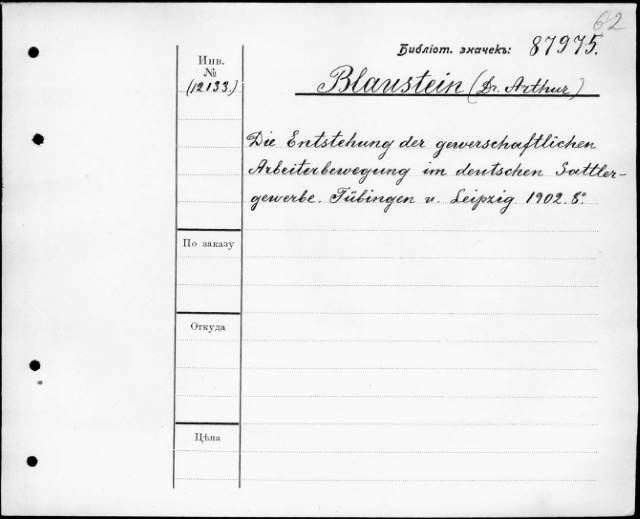 62
Библіот. значекъ: 87975.
Инв.
№
(12133.)
Blaustein (Dr. Arthur)
Die Entstehung der gewerschaftlichen
Arbeiterbewegung im deutschen Sattler-
gewerbe. Tübingen u. Leipzig 1902. 8°
По заказу
Откуда
Цѣна